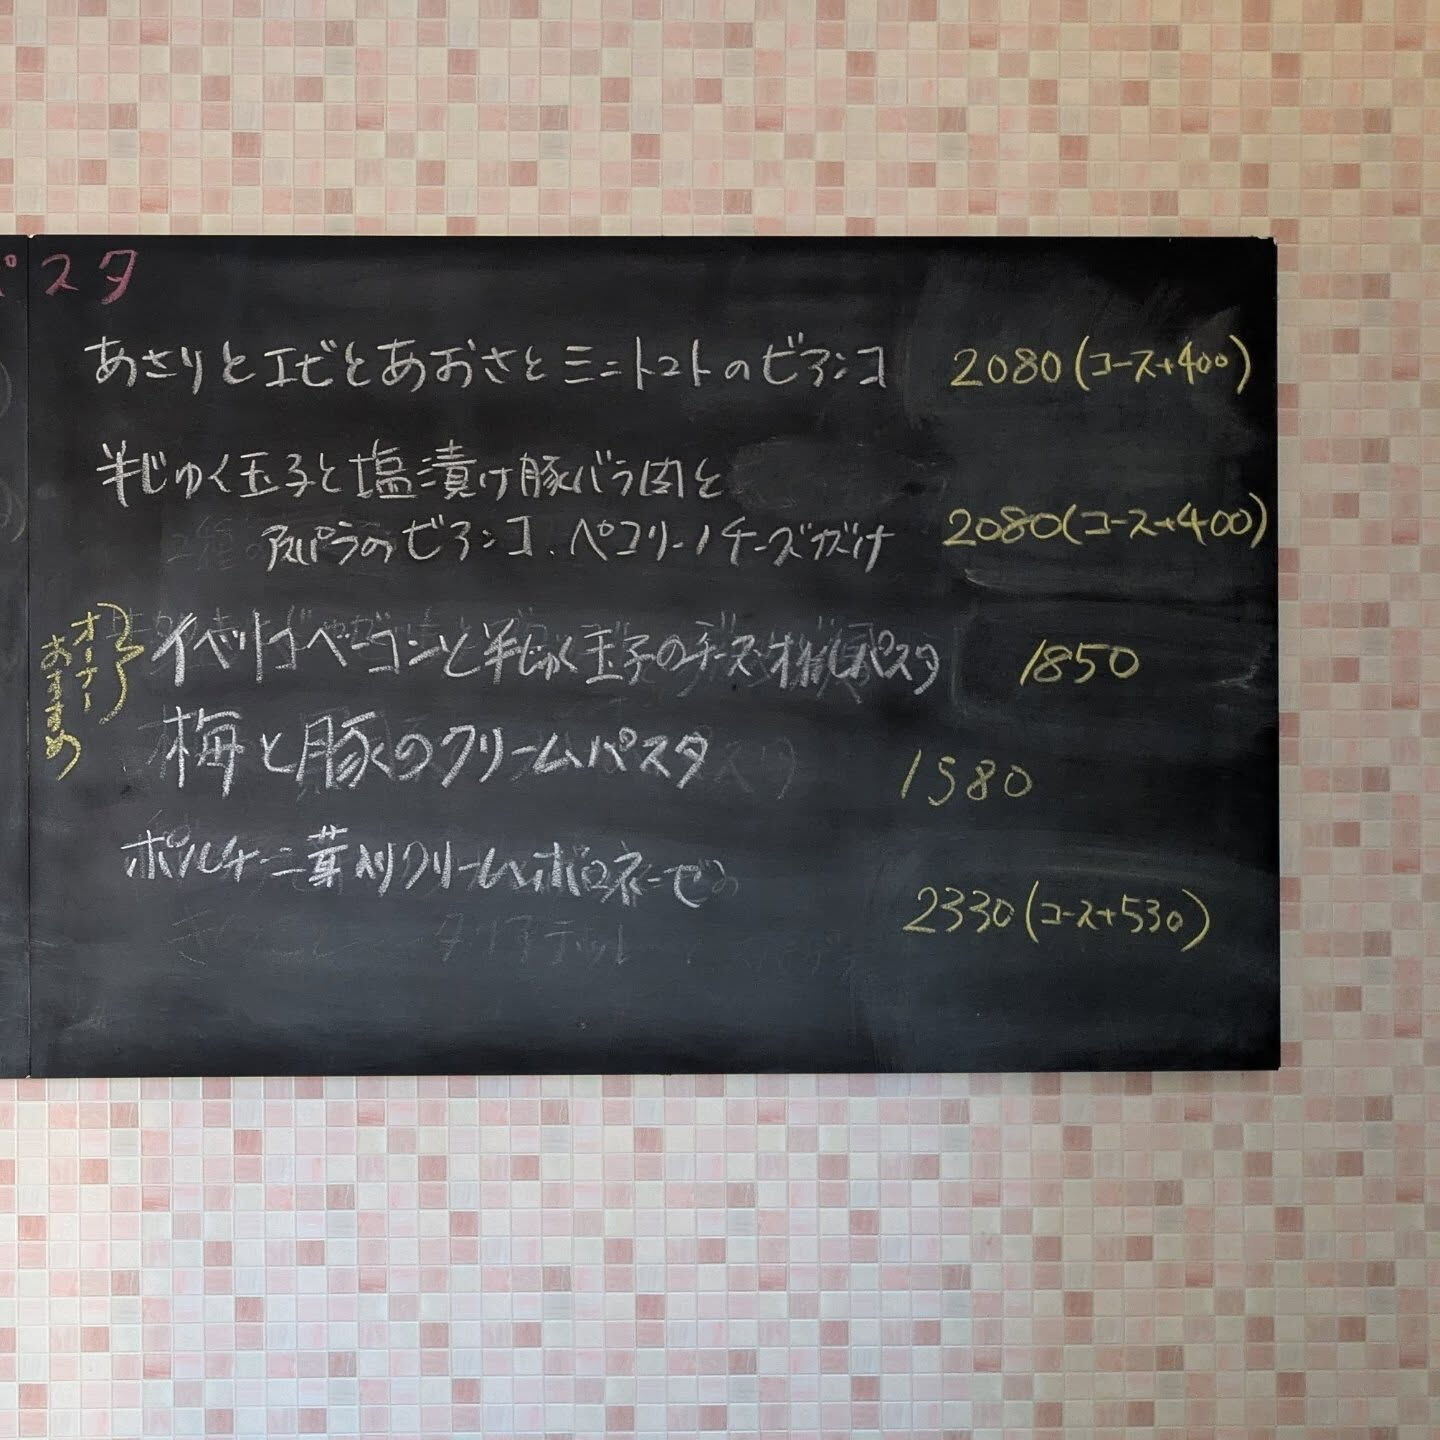 パスタ
あさりとエビとあおさとミニトマトのビアンコ 2080(コース+400)
半じゅく玉子と塩漬け豚バラ肉と
アスパラのビアンコ、ペコリーノチーズがけ 2080(コース+400)
オーナー
おすすめ
イベリコベーコンと半じゅく玉子のチーズパスタ 1850
梅と豚のクリームパスタ 1580
ポルチーニ茸入りクリームボロネーゼ
2330(コース+530)